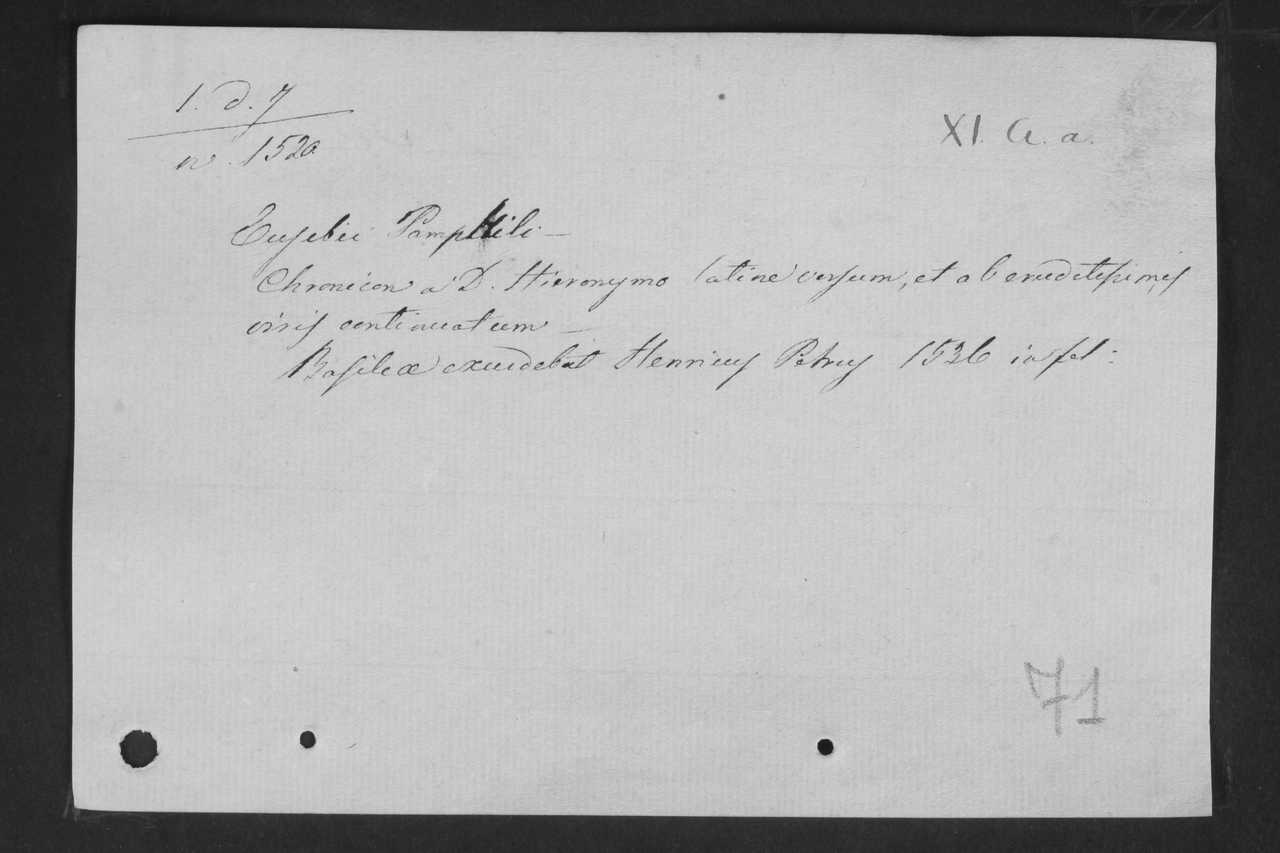 1. d. 7
n. 1520
XI. A. a.
Eusebii Pamphili —
Chronicon a D. Hieronymo latine versum, et ab eruditissimis
viris continuatum —
Basileæ excudebat Henricus Petrus 1536 in fol:
71